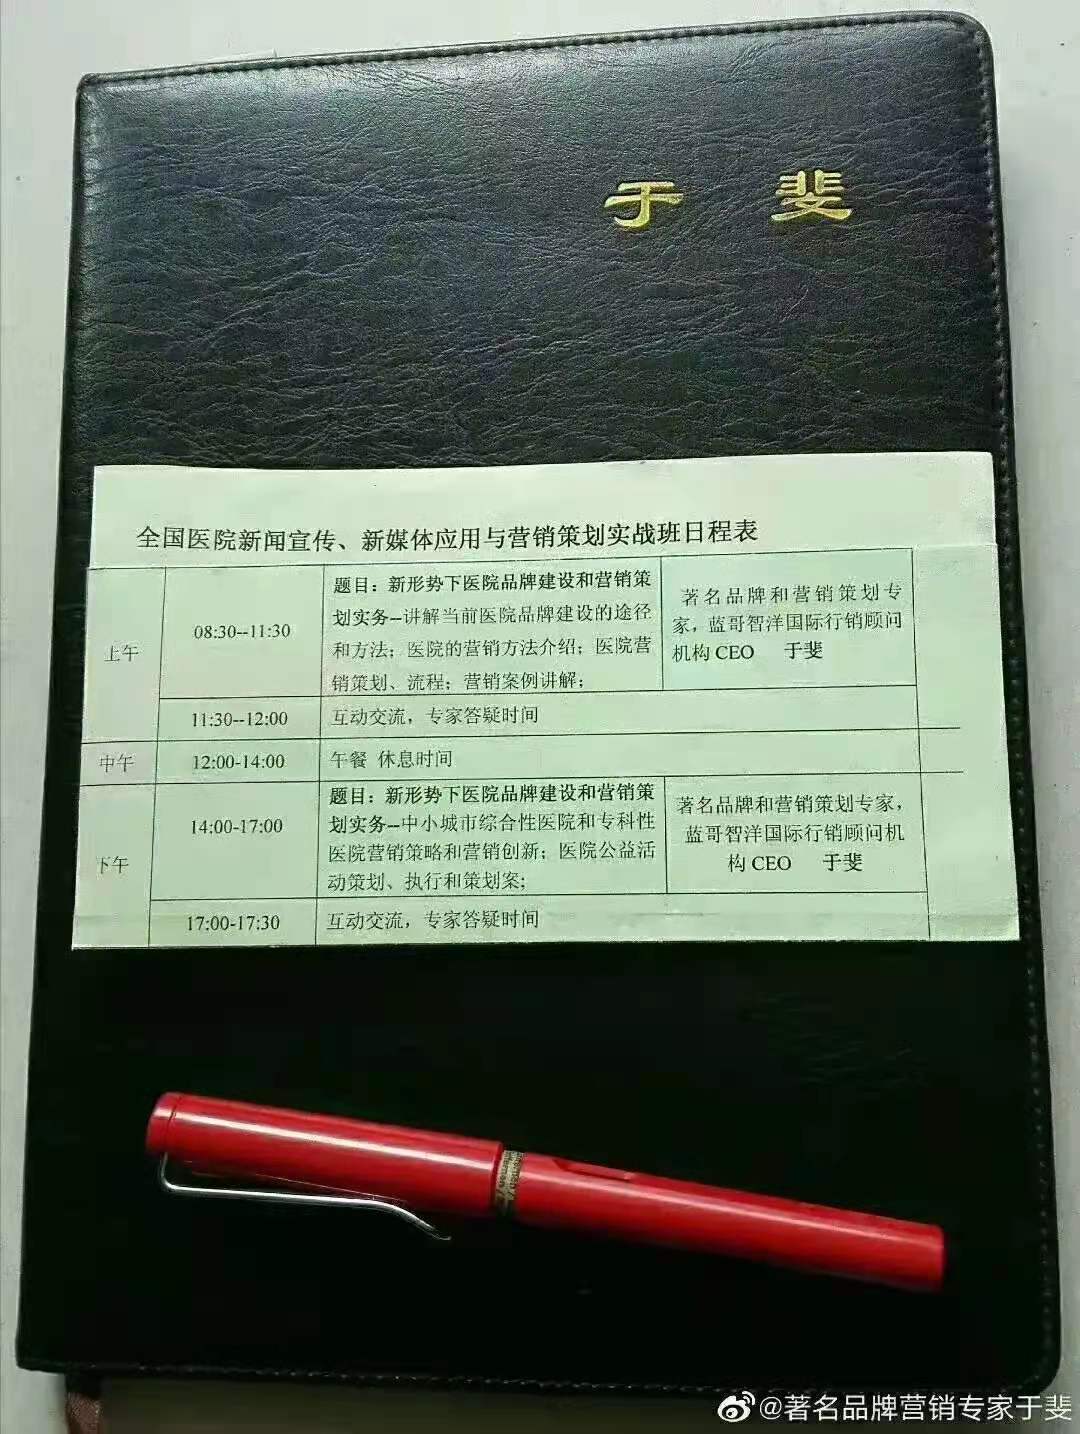 于 斐
全国医院新闻宣传、新媒体应用与营销策划实战班日程表
上午
08:30--11:30
题目：新形势下医院品牌建设和营销策
划实务--讲解当前医院品牌建设的途径
和方法；医院的营销方法介绍；医院营
销策划、流程；营销案例讲解；
著名品牌和营销策划专
家，蓝哥智洋国际行销顾问
机构 CEO 于斐
11:30--12:00
互动交流，专家答疑时间
中午
12:00-14:00
午餐 休息时间
下午
14:00-17:00
题目：新形势下医院品牌建设和营销策
划实务--中小城市综合性医院和专科性
医院营销策略和营销创新；医院公益活
动策划、执行和策划案；
著名品牌和营销策划专家，
蓝哥智洋国际行销顾问机
构 CEO 于斐
17:00-17:30
互动交流，专家答疑时间
@著名品牌营销专家于斐